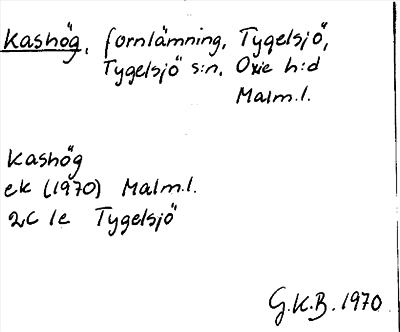 Kashög, fornlämning, Tygelsjö,
Tygelsjö s:n, Oxie h:d
Malm.l.
Kashög
ek (1970) Malm.l.
2C 1e Tygelsjö
G.K.B. 1970